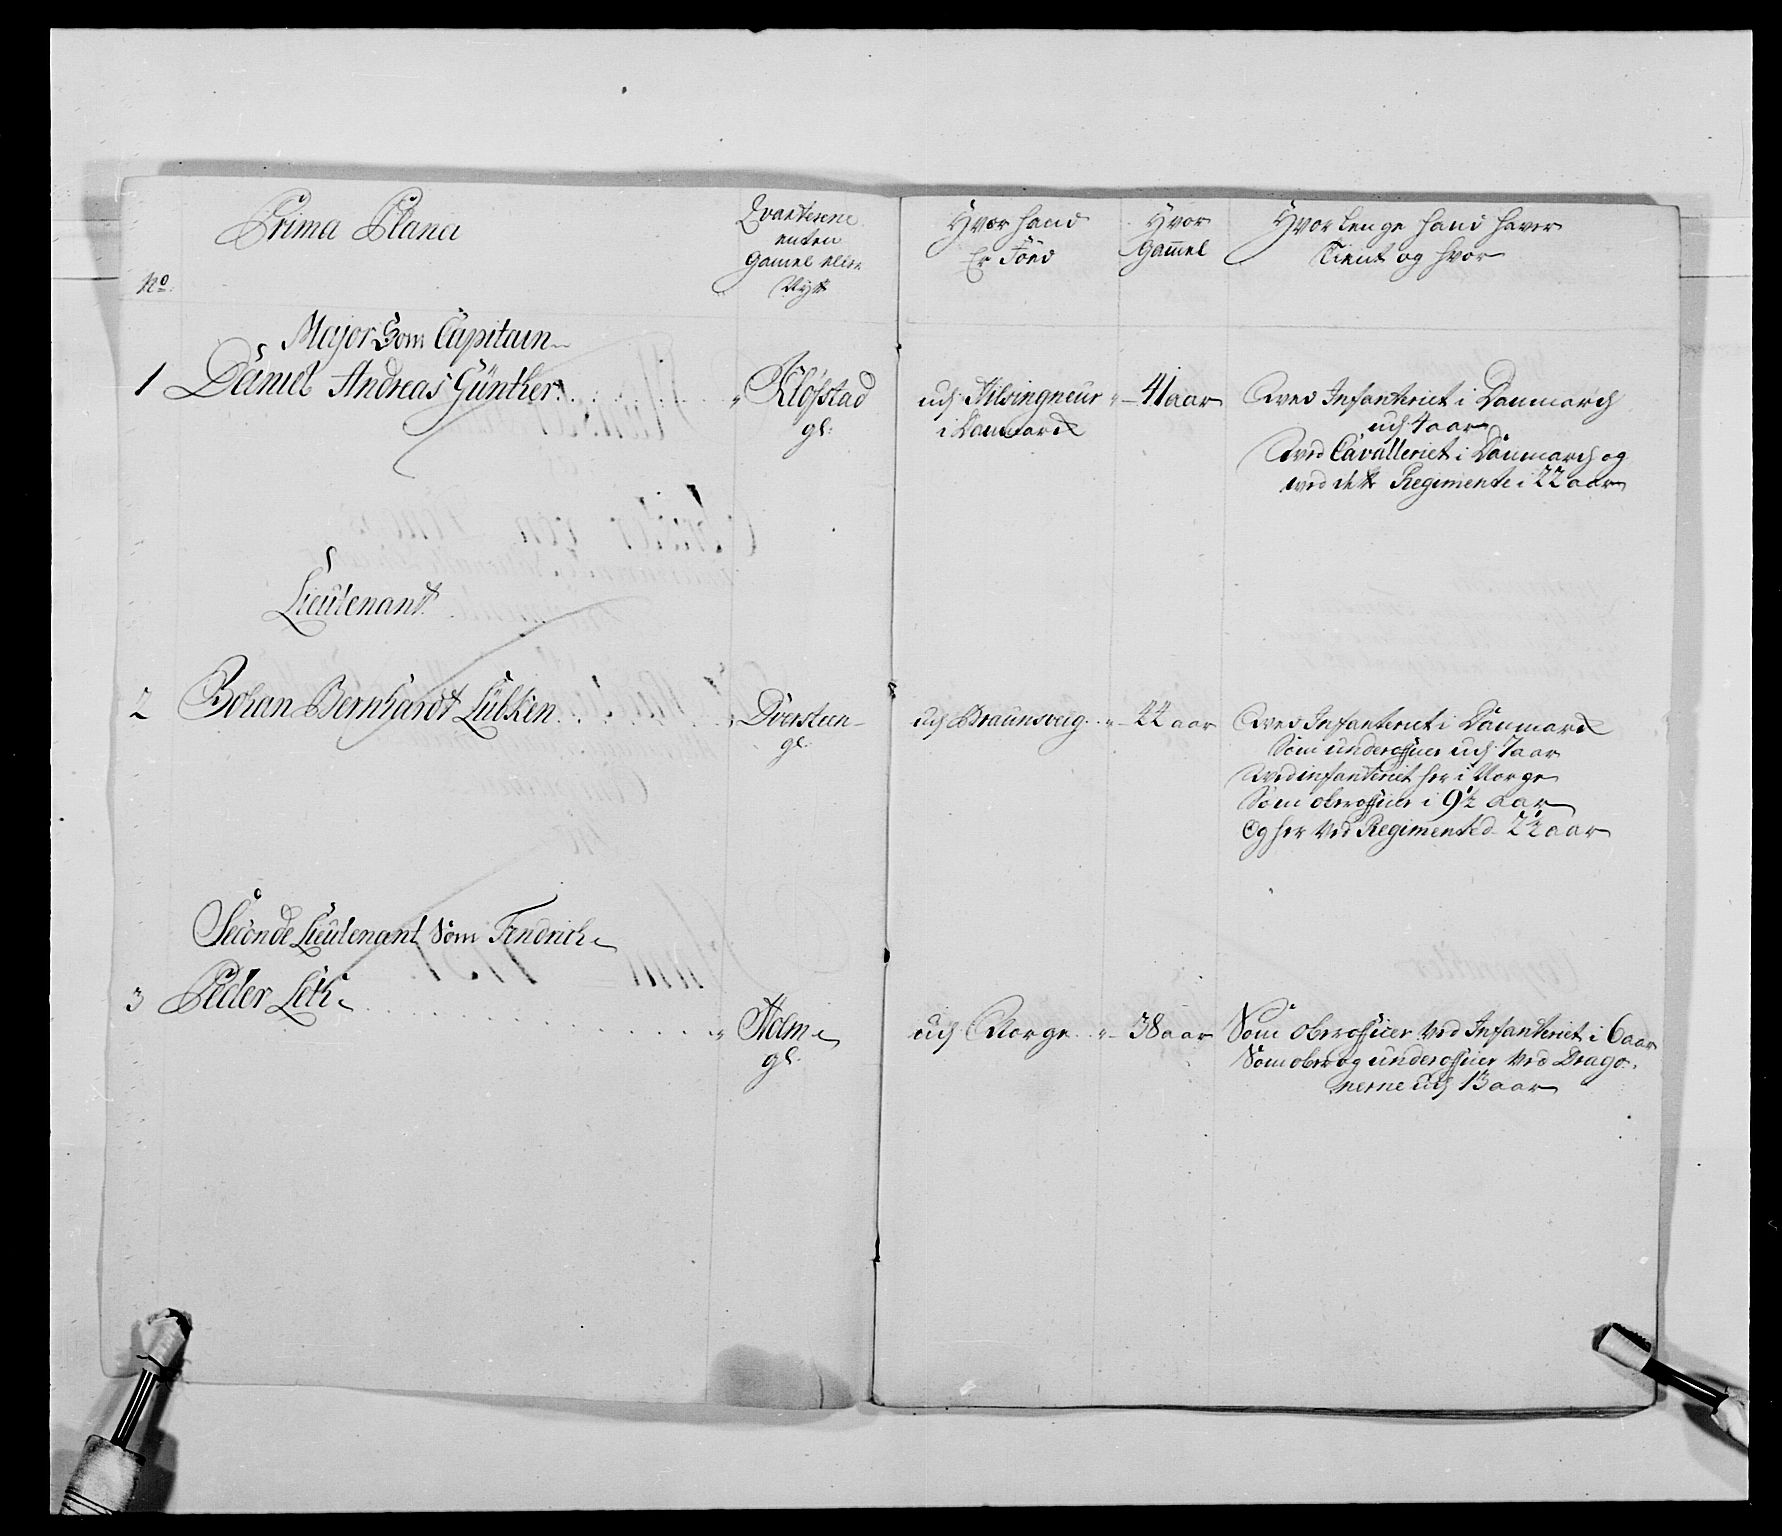 Prima Plana
Qvarterene
enten
Gamel eller
Nytt
Hvor hand
Er Föed
Hvor
Gammel
Hvor lenge hand haver
Tient og hvor
No
Major Som Capitain
1 Daniel Andreas Günther
Klöfstad
gl:
udj Helsingneur
i Danmarck
41 aar
Ved Infanteriet i Danmarch
udj 4 aar
Ved Cavalleriet i Danmarch og
ved dette Regimente i 22 aar
Lieutenant
2 Johan Bernhardt Lübken
Oversteen
gl:
udj Braunsveig
44 aar
Ved Infanteriet i Danmarck
Som underofficer udj 7 aar
Ved infanteriet her i Norge
Som oberofficer i 9½ aar
Og her Ved Regimented 2½ aar
Seconde Lieutenant Som Fendrich
3 Peder Leth
Holm
gl:
udj Norge
38 aar
Som oberofficer Ved Infanteriet i 6 aar
Som ober og underofficer Ved Drago-
nerne udj 13 aar